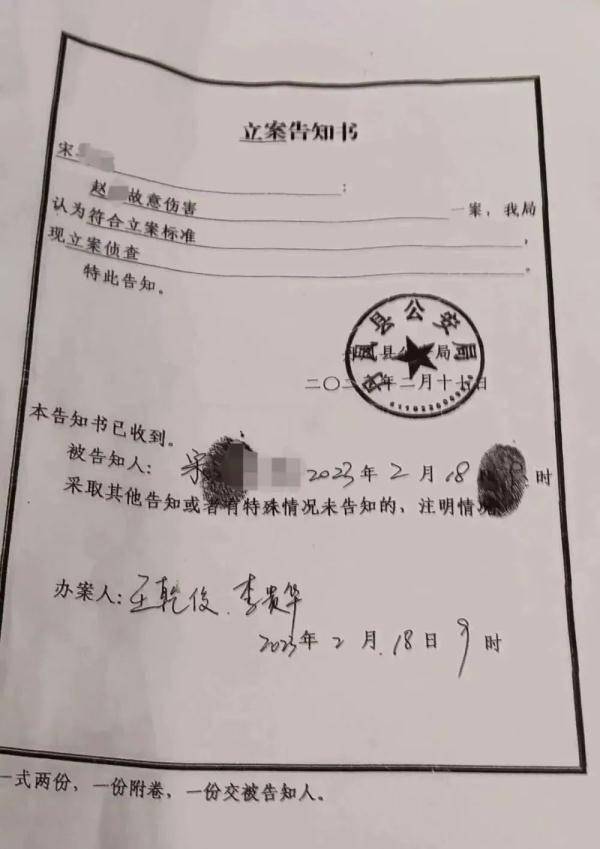 立案告知书
宋
赵 故意伤害 一案，我局
认为符合立案标准，
现立案侦查。
特此告知。
凤县公安局
县公 局
二〇二 年二月十七日
本告知书已收到。
被告知人：宋 2023年2月18 时
采取其他告知或者有特殊情况未告知的，注明情况
办案人：王乾俊、李贵华
2023年2月18日9时
一式两份，一份附卷，一份交被告知人。